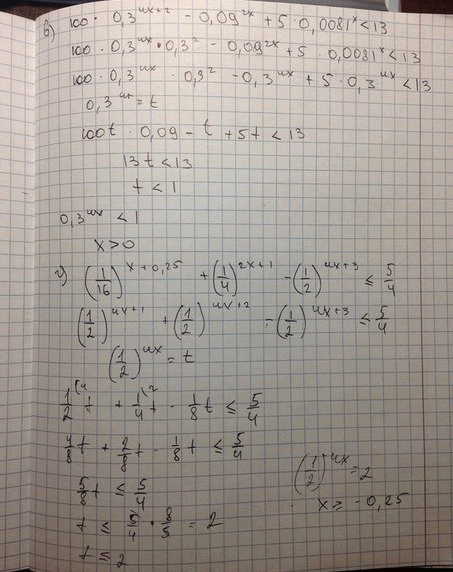 в) 100 · 0,3^{4x+2} - 0,09^{2x} + 5 · 0,0081^{x} < 13
100 · 0,3^{4x} · 0,3^{2} - 0,09^{2x} + 5 · 0,0081^{x} < 13
100 · 0,3^{4x} · 0,3^{2} - 0,3^{4x} + 5 · 0,3^{4x} < 13
0,3^{4x} = t
100t · 0,09 - t + 5t < 13
13t < 13
t < 1
0,3^{4x} < 1
x > 0
г) (1/16)^{x+0,25} + (1/4)^{2x+1} - (1/2)^{4x+3} ≤ 5/4
(1/2)^{4x+1} + (1/2)^{4x+2} - (1/2)^{4x+3} ≤ 5/4
(1/2)^{4x} = t
1/2^{(4} t + 1/4^{(2} t - 1/8 t ≤ 5/4
4/8 t + 2/8 t - 1/8 t ≤ 5/4
5/8 t ≤ 5/4
t ≤ 5/4 · 8/5 = 2
t ≤ 2
(1/2)^{4x} = 2
x ≥ -0,25